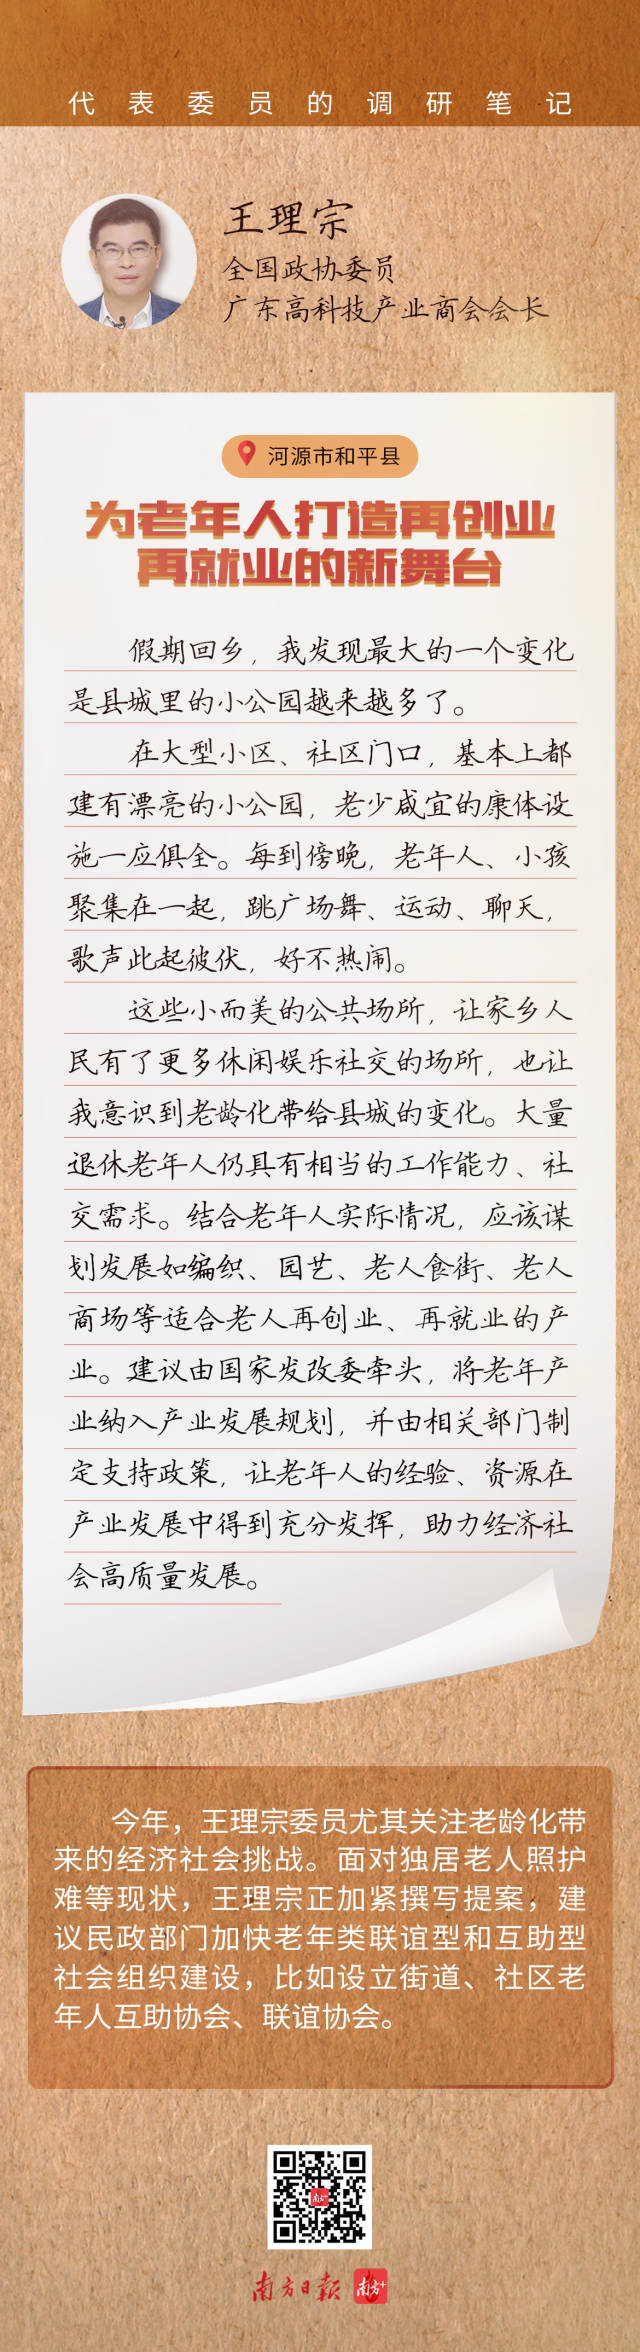 代表委员的调研笔记
王理宗
全国政协委员
广东高科技产业商会会长
河源市和平县
为老年人打造再创业
再就业的新舞台
假期回乡，我发现最大的一个变化
是县城里的小公园越来越多了。
在大型小区、社区门口，基本上都
建有漂亮的小公园，老少咸宜的康体设
施一应俱全。每到傍晚，老年人、小孩
聚集在一起，跳广场舞、运动、聊天，
歌声此起彼伏，好不热闹。
这些小而美的公共场所，让家乡人
民有了更多休闲娱乐社交的场所，也让
我意识到老龄化带给县城的变化。大量
退休老年人仍具有相当的工作能力、社
交需求。结合老年人实际情况，应该谋
划发展如编织、园艺、老人食街、老人
商场等适合老人再创业、再就业的产
业。建议由国家发改委牵头，将老年产
业纳入产业发展规划，并由相关部门制
定支持政策，让老年人的经验、资源在
产业发展中得到充分发挥，助力经济社
会高质量发展。
今年，王理宗委员尤其关注老龄化带
来的经济社会挑战。面对独居老人照护
难等现状，王理宗正加紧撰写提案，建
议民政部门加快老年类联谊型和互助型
社会组织建设，比如设立街道、社区老
年人互助协会、联谊协会。
南方+
南方日报 南方+